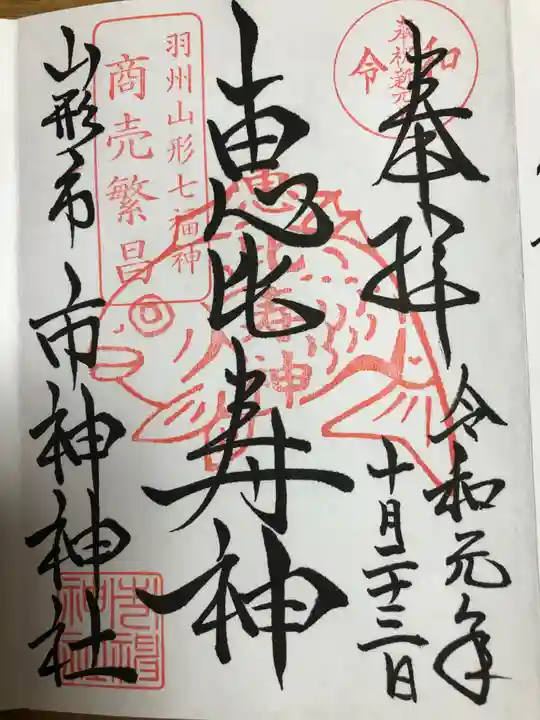 奉拝
令和元年
十月二十三日
恵比寿神
山形市
市神神社
奉祝新元号
令和
羽州山形七福神
商売繁昌
恵比寿神